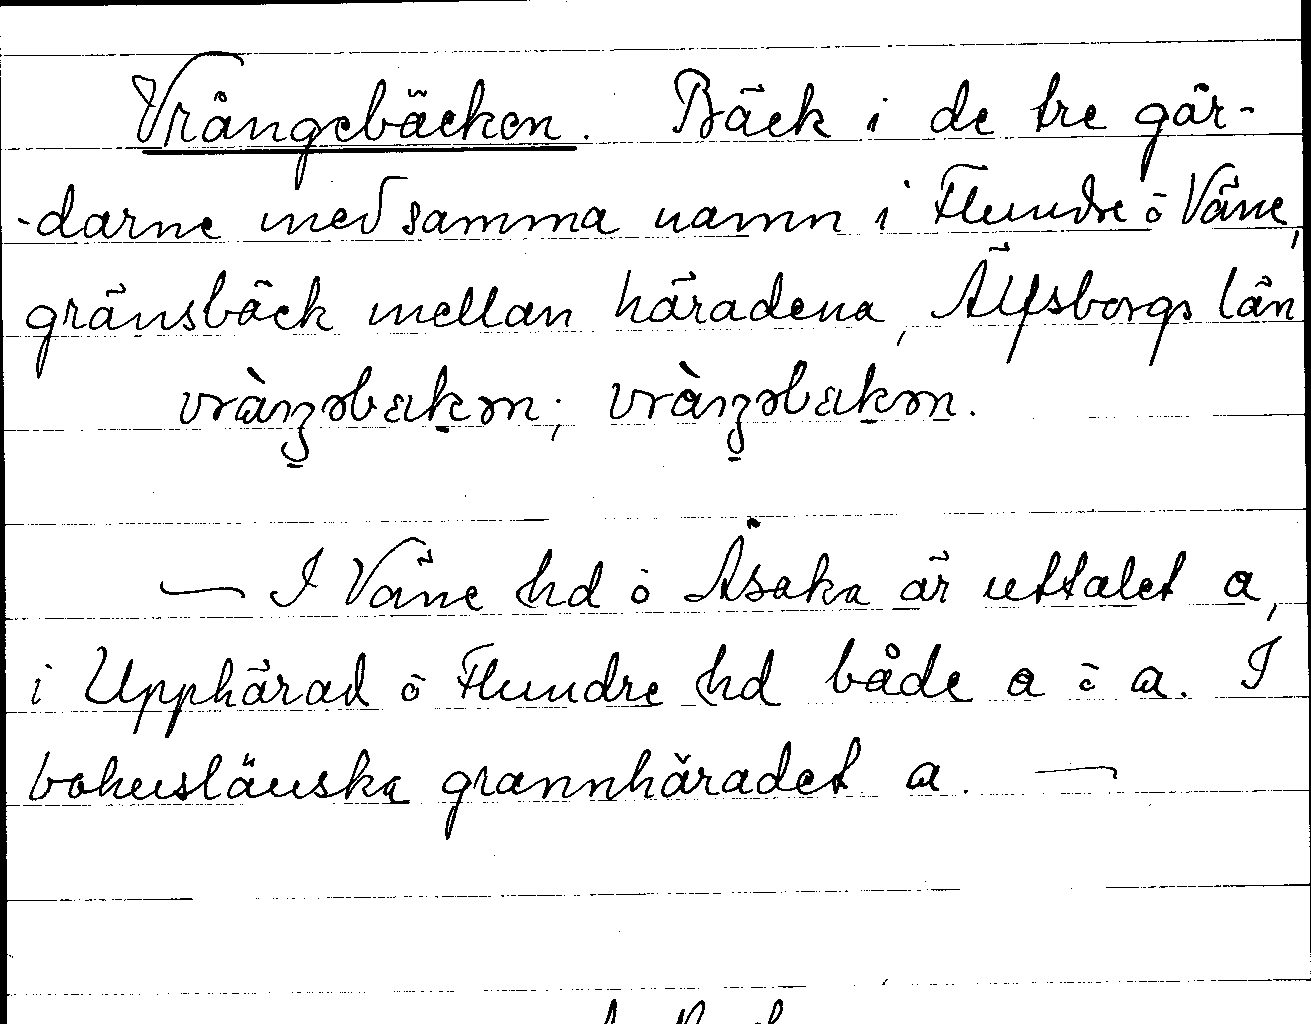 Vrångebäcken. Bäck i de tre går-
-darne med samma namn i Flundre ō Väne,
gränsbäck mellan häradena, Älfsborgs län
I Väne hd ō Åsaka är uttalet a,
i Upphärad ō Flundre hd både a ō a. I
bohuslänska grannhäradet a. —